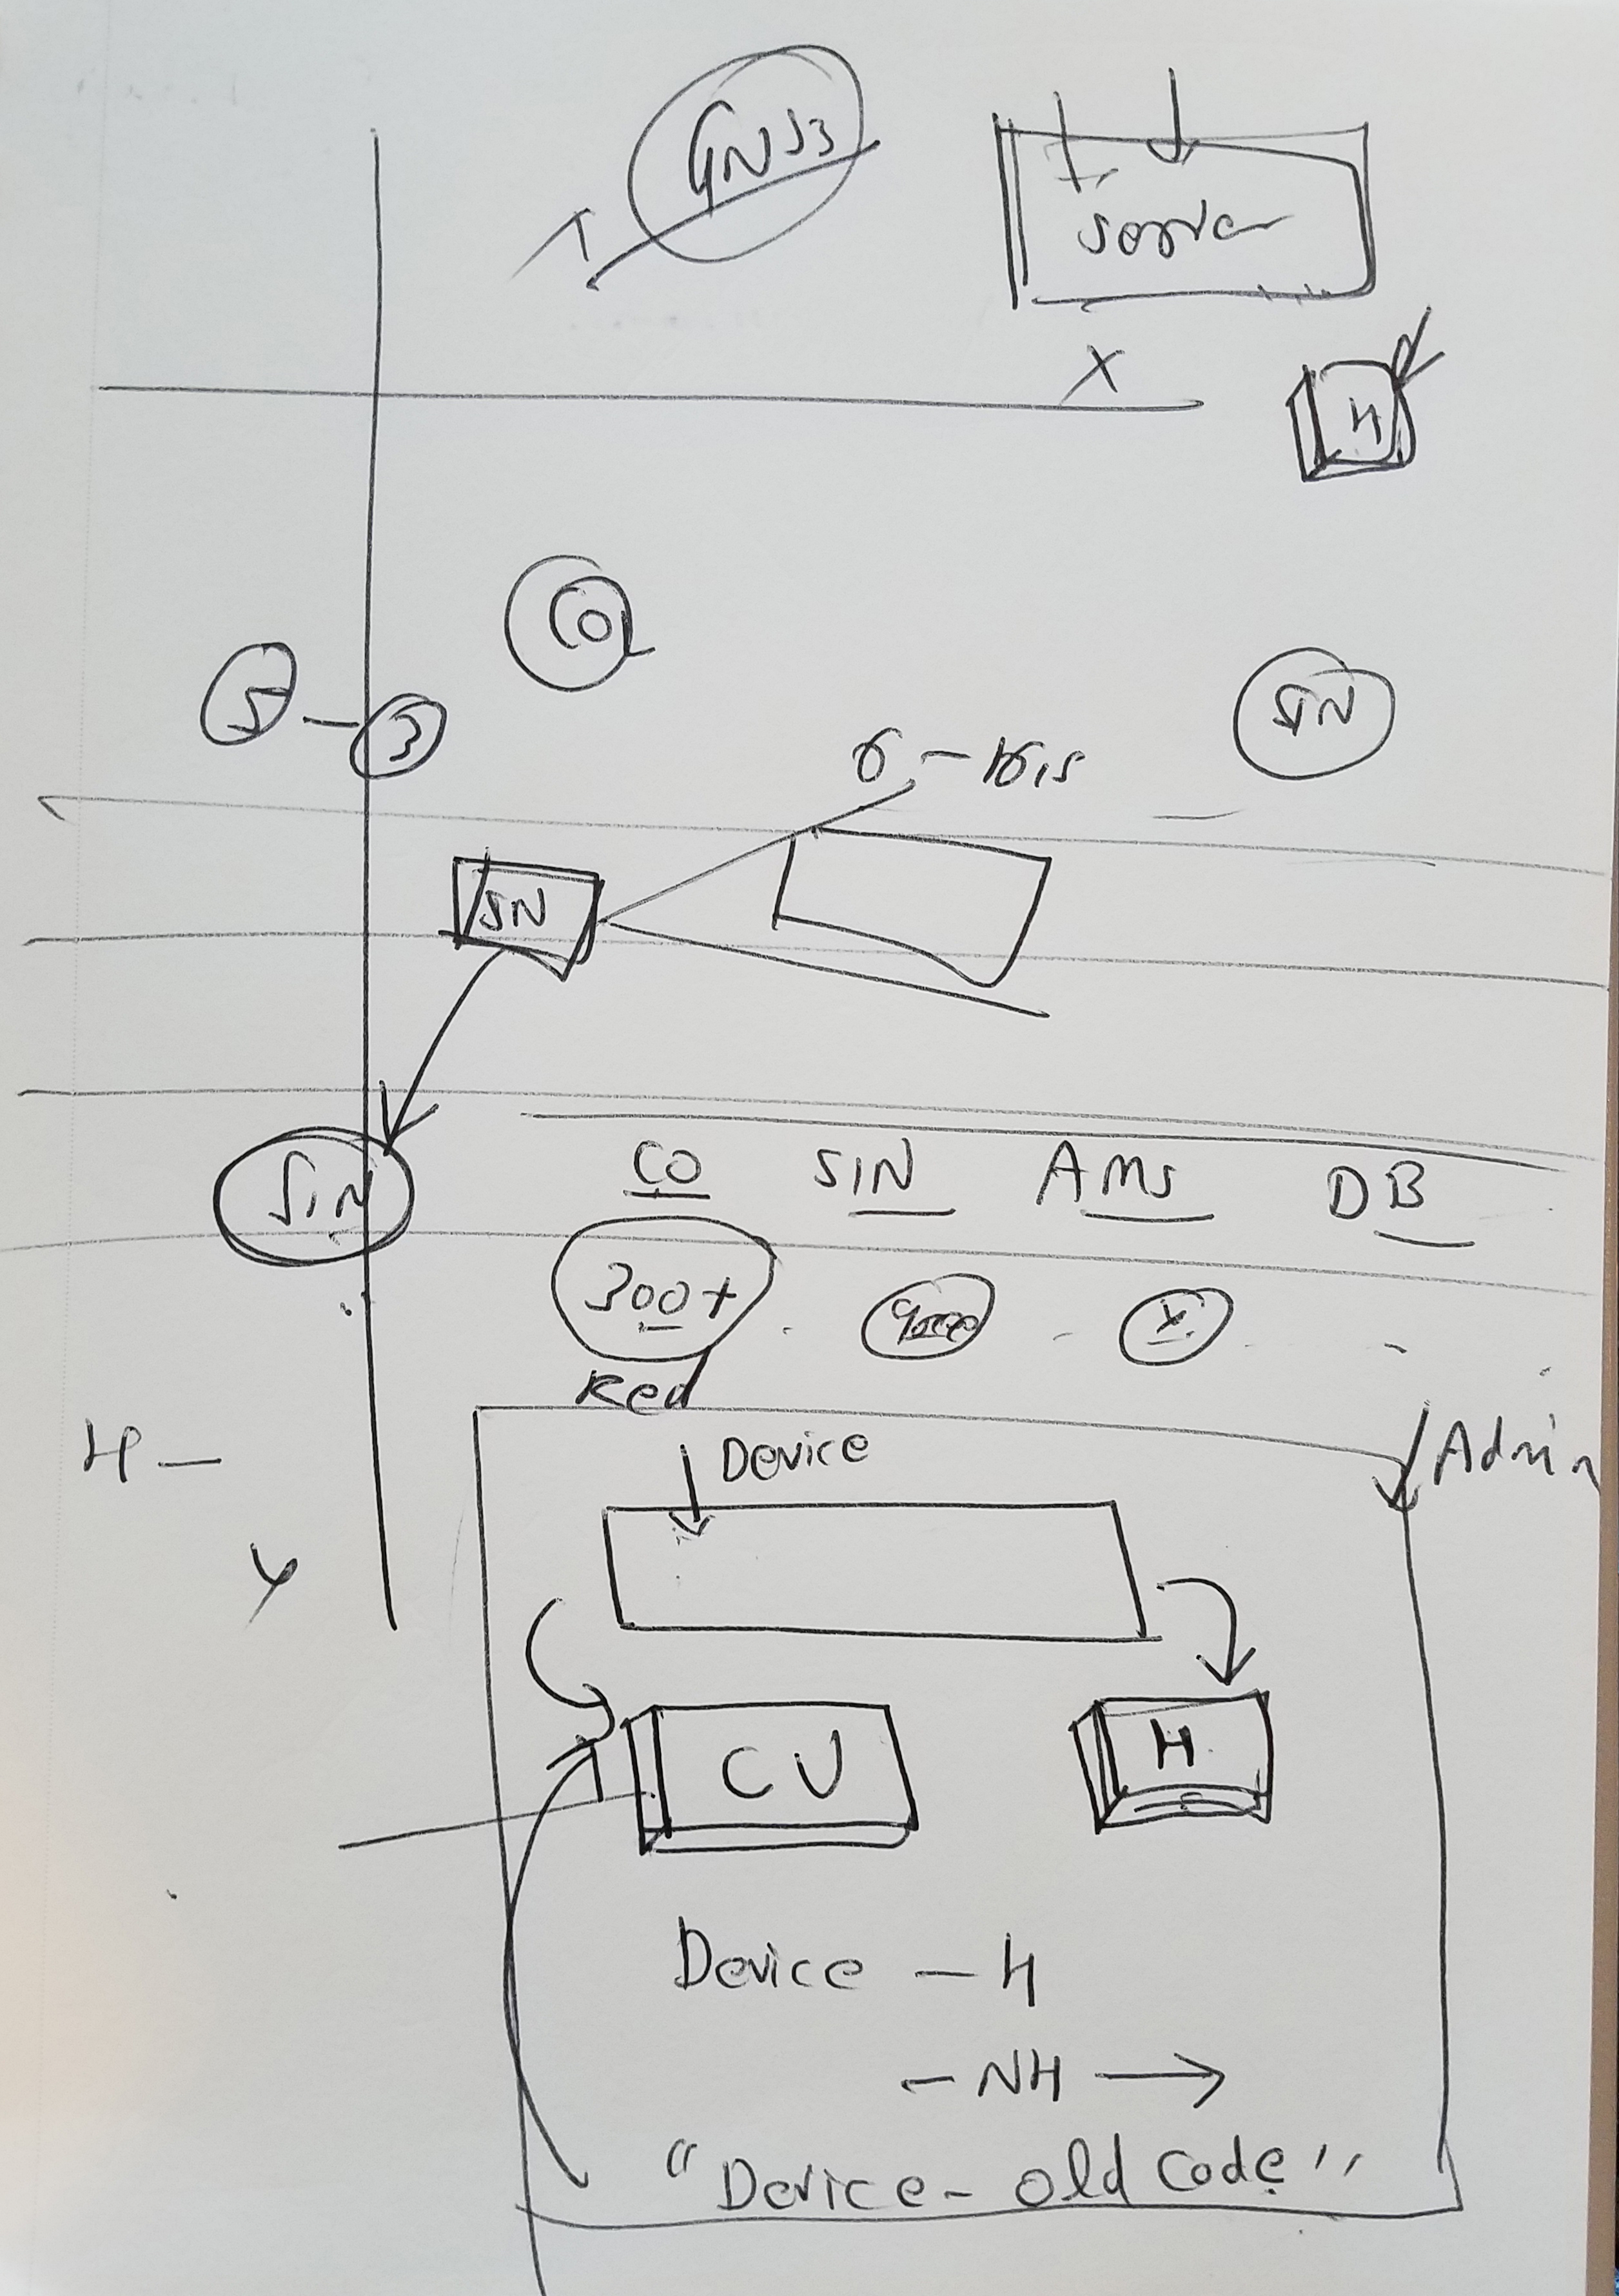 GNS3
server
X
H
CO
5 - 3
SIN
SN
SIN
CO SIN AMS DB
300+
Red
H -
Device
Admin
Y
CU
H
Device - H
- NH →
"Device - old code"